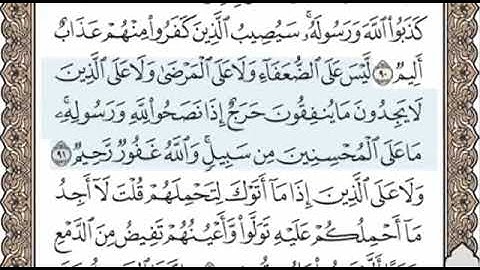 كَذَبُوا۟ ٱللَّهَ وَرَسُولَهُۥ ۚ سَيُصِيبُ ٱلَّذِينَ كَفَرُوا۟ مِنْهُمْ عَذَابٌ
أَلِيمٌ ٩٠ لَّيْسَ عَلَى ٱلضُّعَفَآءِ وَلَا عَلَى ٱلْمَرْضَىٰ وَلَا عَلَى ٱلَّذِينَ
لَا يَجِدُونَ مَا يُنفِقُونَ حَرَجٌ إِذَا نَصَحُوا۟ لِلَّهِ وَرَسُولِهِۦ ۚ
مَا عَلَى ٱلْمُحْسِنِينَ مِن سَبِيلٍ ۚ وَٱللَّهُ غَفُورٌ رَّحِيمٌ ٩١
وَلَا عَلَى ٱلَّذِينَ إِذَا مَآ أَتَوْكَ لِتَحْمِلَهُمْ قُلْتَ لَآ أَجِدُ
مَآ أَحْمِلُكُمْ عَلَيْهِ تَوَلَّوا۟ وَّأَعْيُنُهُمْ تَفِيضُ مِنَ ٱلدَّمْعِ